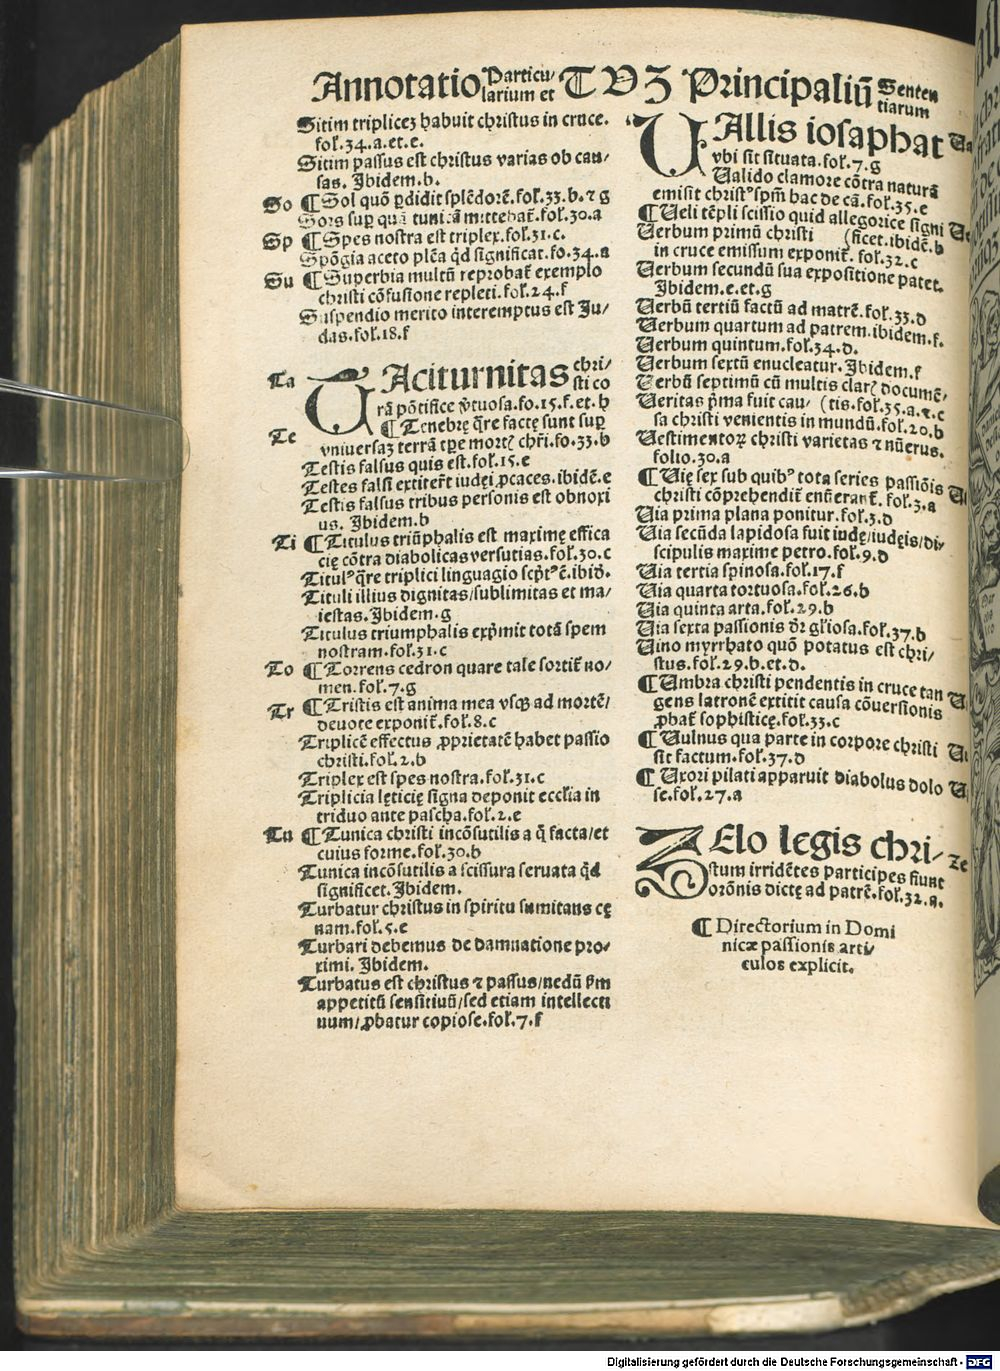 Annotatio Particu/larium et T V Z Principaliū Sententiarum
Sitim triplicez habuit christus in cruce.
fol.34.a.et.e.
Sitim passus est christus varias ob cau/
sas. Ibidem.b.
So ¶ Sol quō p̱didit splēdorē.fol.33.b.⁊ g
Sors sup̱ quā tunicā mittebāt̄.fol.30.a
Sp ¶ Spes nostra est triplex.fol.31.c.
Spōgia aceto plēa qd̄ significat.fo.34.a
Su ¶ Superbia multū reprobat̄ exemplo
christi cōfusione repleti.fol.24.f
Suspendio merito interemptus est Ju/
das.fol.18.f
Ta TAciturnitas chri/
sti co
rā pōtifice v̄tuosa.fo.15.f.et.h
Te ¶ Tenebrę q̄re factę sunt sup̱
vniversaz terrā tp̱e mortꝭ chr̄i.fo.33.b
Testis falsus quis est.fol.15.e
Testes falsi extiter̄t iudęi ꝓcaces.ibidē.e
Testis falsus tribus personis est obnoxi
us. Ibidem.b
Ti ¶ Titulus triūphalis est maximę effica
cię cōtra diabolicas versutias.fol.30.c
Titulꝰ q̄re triplici linguagio scp̄tꝰ ē.ibid̄.
Tituli illius dignitas/sublimitas et ma/
iestas.Ibidem.g
Titulus triumphalis exp̄mit totā spem
nostram.fol.31.c
To ¶ Torrens cedron quare tale sortit̄ no/
men.fol.7.g
Tr ¶ Tristis est anima mea vsqꝫ ad mortē/
deuote exponit̄.fol.8.c
Triplicē effectus ꝓprietatē habet passio
christi.fol.2.b
Triplex est spes nostra.fol.31.c
Triplicia lęticię signa deponit eccl̄ia in
triduo ante pascha.fol.2.e
Tu ¶ Tunica christi incōsutilis a q̄ facta/et
cuius forme.fol.30.b
Tunica incōsutilis a scissura seruata qd̄
significet.Ibidem.
Turbatur christus in spiritu sumitans cę
nam.fol.5.e
Turbari debemus de damnatione pro/
ximi. Ibidem.
Turbatus est christus ⁊ passus/nedū s̄m
appetitū sensitiuū/sed etiam intellecti
uum/ꝓbatur copiose.fol.7.f
VAllis iosaphat Va
vbi sit situata.fol.7.g
Valido clamore cōtra naturā
emisit christꝰ spm̄ hac de cā.fol.35.e
¶ Veli tēpli scissio quid allegorice signi Ve
Verbum primū christi (ficet.ibidē.b
in cruce emissum exponit̄. fol.32.c
Verbum secundū sua expositione patet.
Ibidem.e.et.g
Verbū tertiū factū ad matrē.fol.33.d
Verbum quartum ad patrem.ibidem.f.
Verbum quintum.fol.34.d.
Verbum sextū enucleatur.Ibidem.f
Verbū septimū cū multis clarꝭ documē/
Veritas p̄ma fuit cau/ (tis.fol.35.a.⁊.c
sa christi venientis in mundū.fol.20.b
Vestimentoꝝ christi varietas ⁊ nūerus.
folio.30.a
¶ Vię sex sub quibꝰ tota series passiōis Vi
christi cōprehendit̄ enūerant̄. fol.3.a
Via prima plana ponitur.fol.3.d
Via secūda lapidosa fuit iudę/iudęis/di/
scipulis maxime petro.fol.9.d
Via tertia spinosa.fol.17.f
Via quarta tortuosa.fol.26.b
Via quinta arta.fol.29.b
Via sexta passionis dr̄ gl̄iosa.fol.37.b
Vino myrrhato quō potatus est chri/
stus.fol.29.b.et.d.
¶ Umbra christi pendentis in cruce tan
gens latronē extitit causa cōuersionis
ꝓbat̄ sophisticę.fol.33.c
¶ Vulnus qua parte in corpore christi
sit factum.fol.37.d
¶ Uxori pilati apparuit diabolus dolo
se.fol.27.a
ZElo legis chri/ Ze
stum irridētes participes fiunt
orōnis dictę ad patrē.fol.32.a.
¶ Directorium in Domi
nicæ passionis arti/
culos explicit.
Digitalisierung gefördert durch die Deutsche Forschungsgemeinschaft - DFG